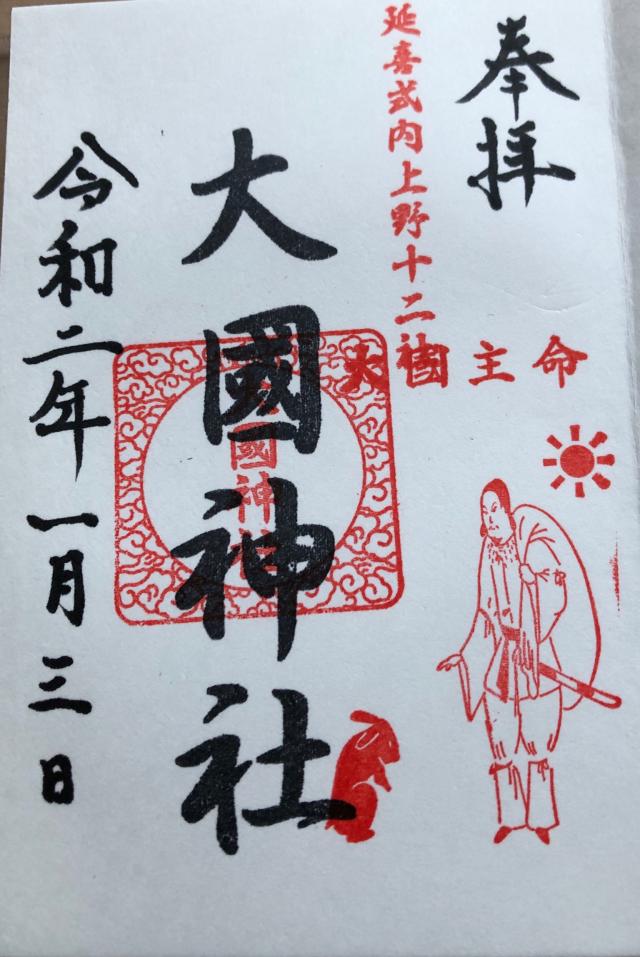 奉拝
延喜式内上野十二社
大国主命
大國神社
國神
令和二年一月三日